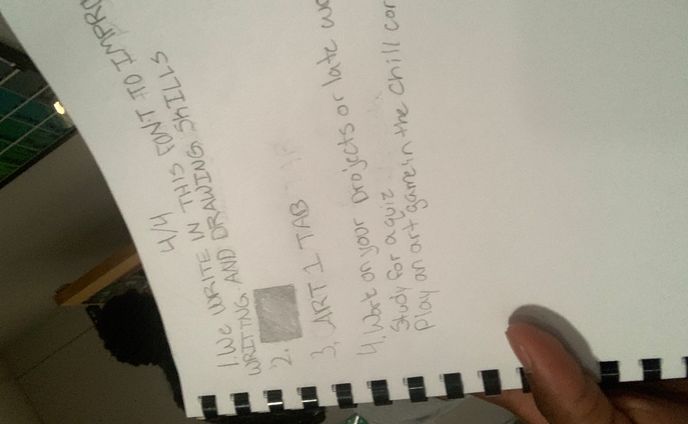 4/4
1. WE WRITE IN THIS FONT TO
WRITING. AND DRAWING. SKILLS
2.
3. ART 1 TAB
4. Work on your projects or late
Study for a quiz
Play an art game in the chill